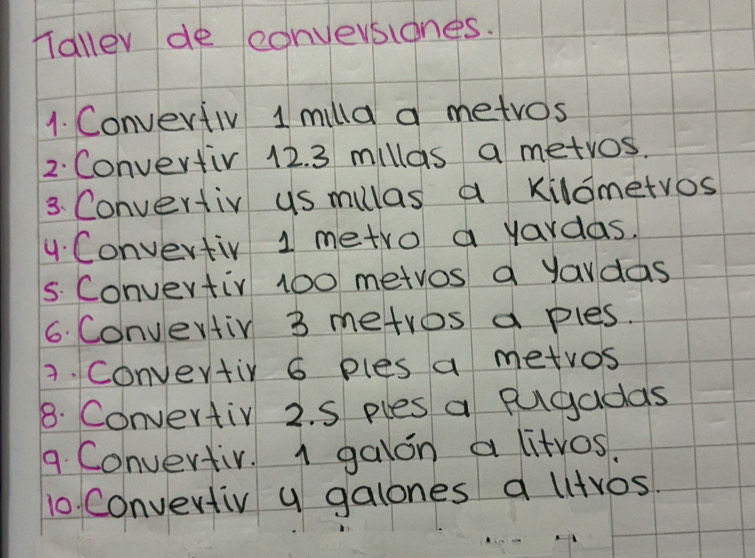 Taller de conversiones.
1. Convertir 1 milla a metros
2. Convertir 12.3 millas a metros.
3. Convertir 45 millas a Kilómetros
4. Convertir 1 metro a yardas.
5. Convertir 100 metros a yardas
6. Convertir 3 metros a pies.
7. Convertir 6 pies a metros
8. Convertir 2.5 pies a pugadas
9. Convertir. 1 galón a litros.
10. Convertir 4 galones a litros.